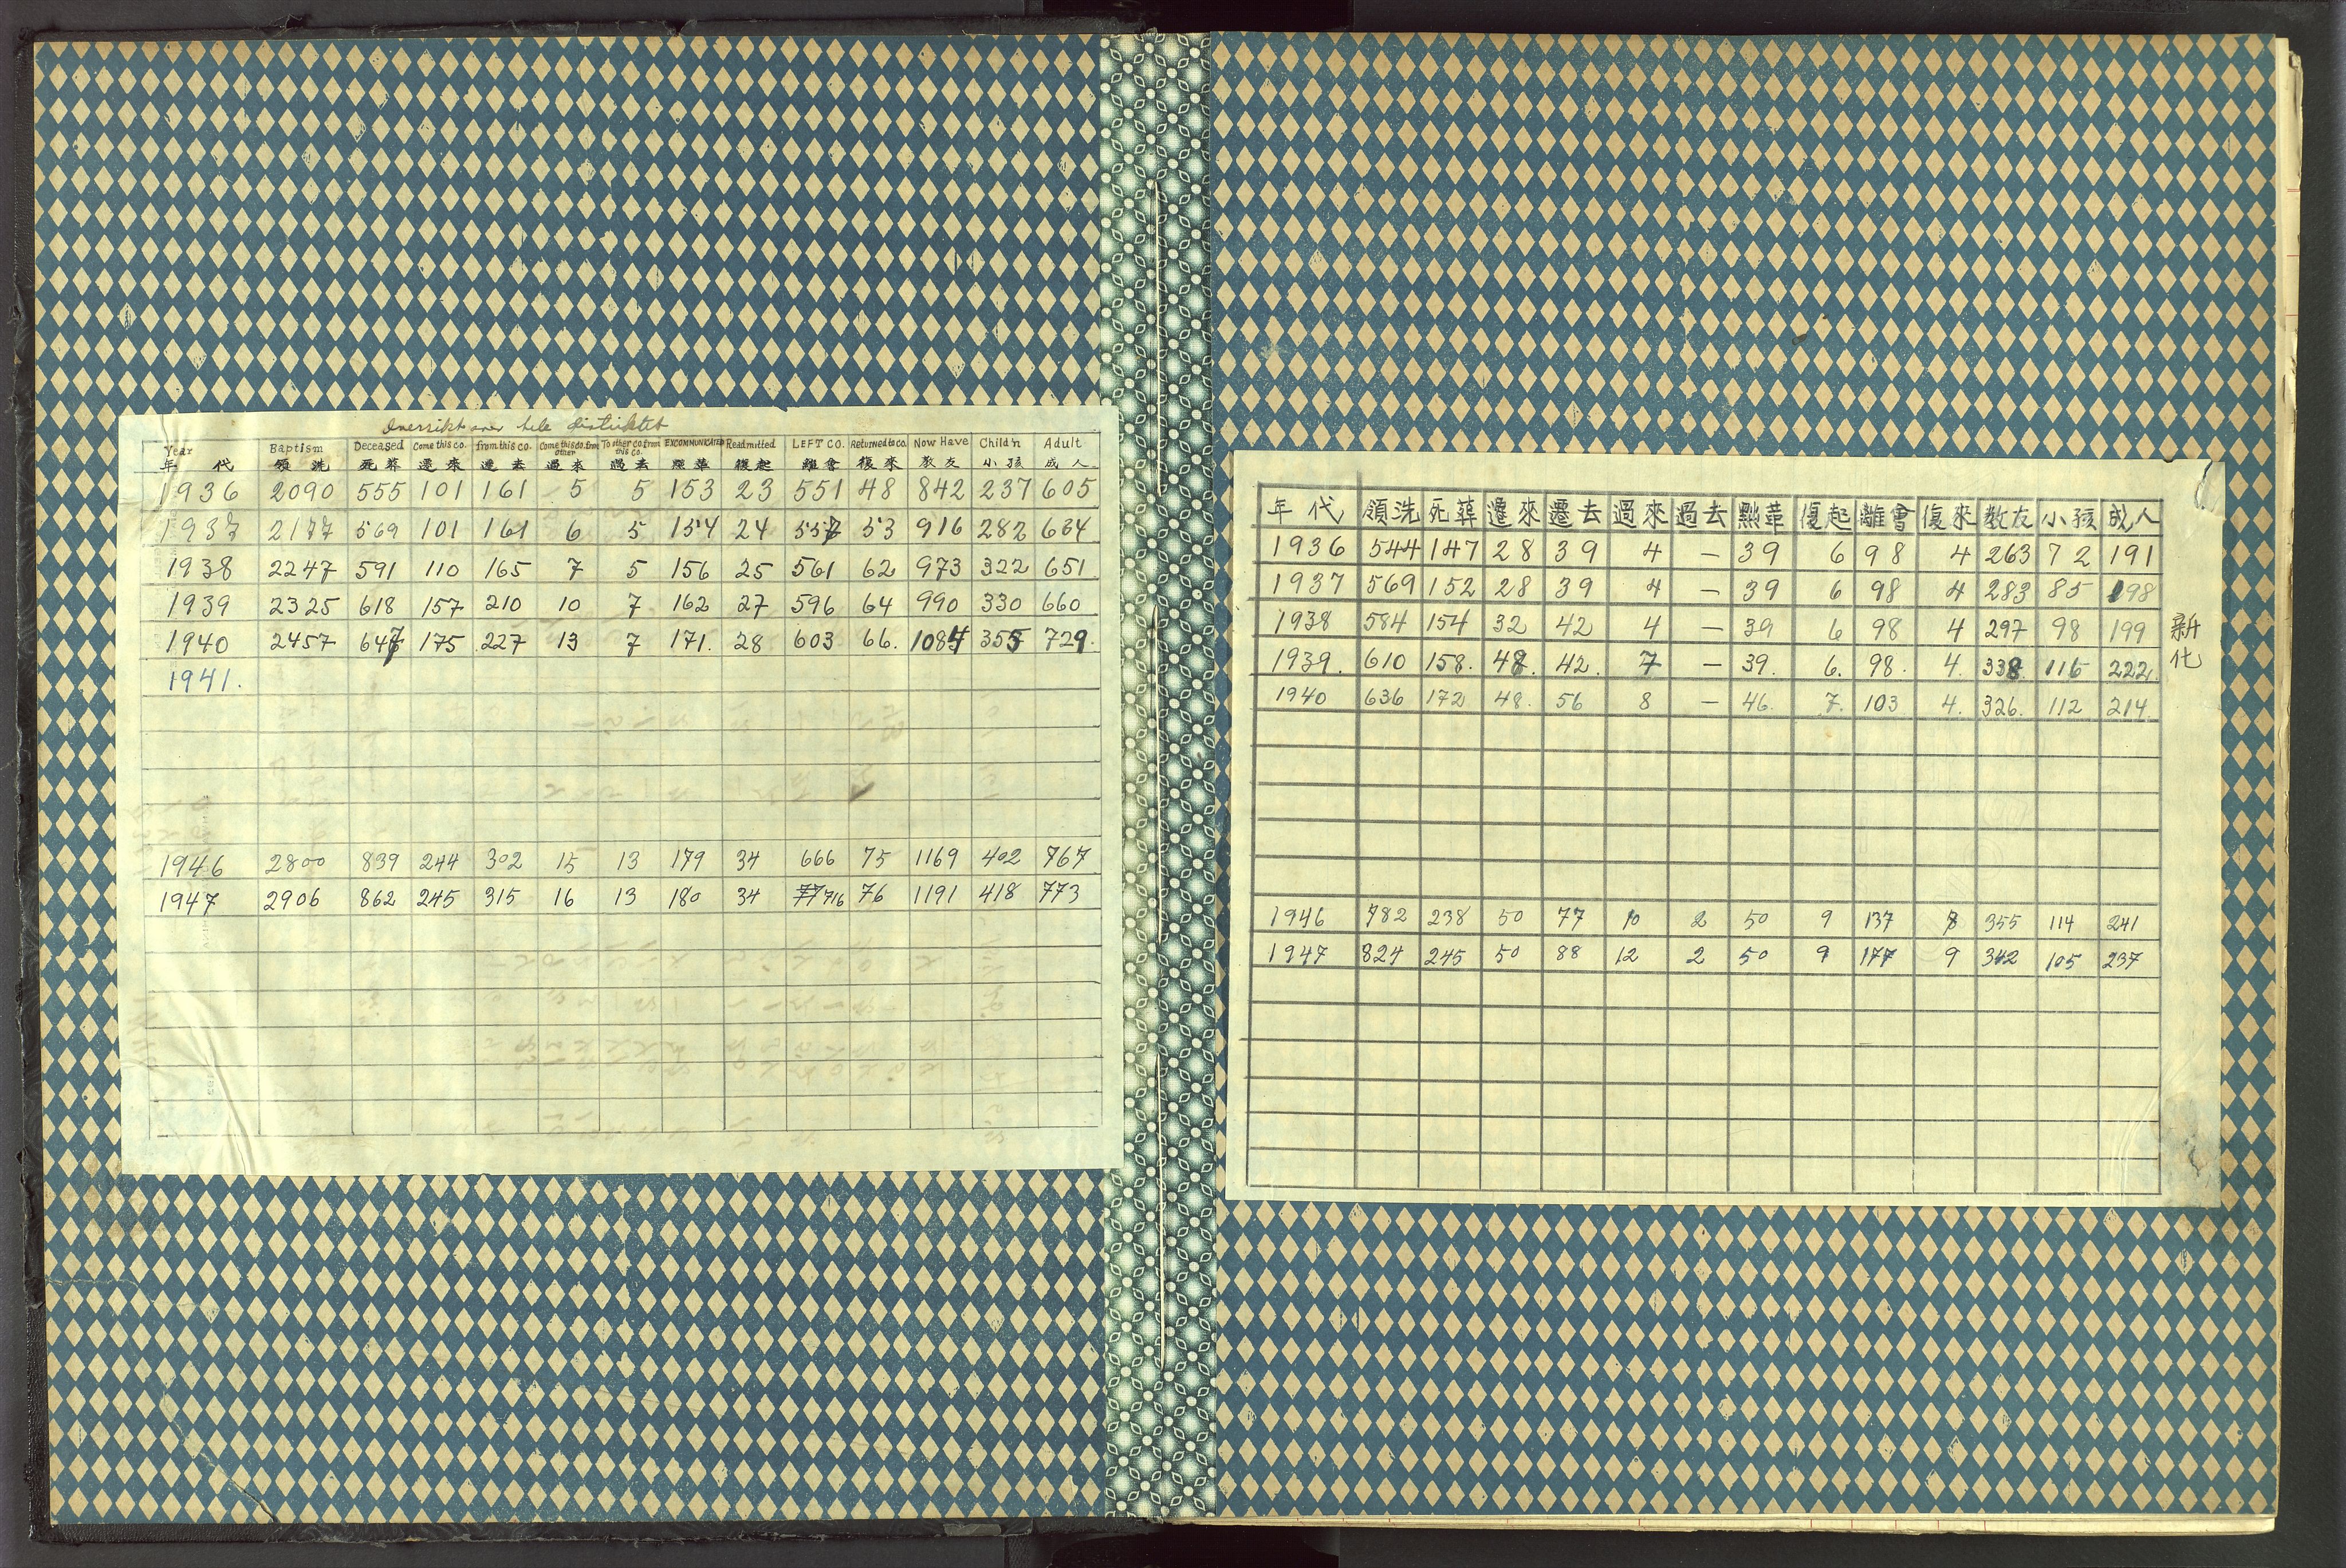 Oversikt over hele distriktet
Year Baptism Deceased Come this co. from this co. Come this co. from other To other co. from this co. EXCOMMUNICATED Readmitted LEFT CO. Returned to co. Now Have Child'n Adult
年代 領洗 死葬 遷來 遷去 過來 過去 黜革 復起 離會 復來 教友 小孩 成人
1936 2090 555 101 161 5 5 153 23 551 48 842 237 605
1937 2177 569 101 161 6 5 154 24 557 53 916 282 634
1938 2247 591 110 165 7 5 156 25 561 62 973 322 651
1939 2325 618 157 210 10 7 162 27 596 64 990 330 660
1940 2457 647 175 227 13 7 171. 28 603 66. 1084 355 729.
1941.
1946 2800 839 244 302 15 13 179 34 666 75 1169 402 767
1947 2906 862 245 315 16 13 180 34 77 716 76 1191 418 773
年代 領洗 死葬 遷來 遷去 過來 過去 黜革 復起 離會 復來 教友 小孩 成人
1936 544 147 28 39 4 — 39 6 98 4 263 72 191
1937 569 152 28 39 4 — 39 6 98 4 283 85 198
1938 584 154 32 42 4 — 39 6 98 4 297 98 199
1939. 610 158. 48. 42. 7 — 39. 6. 98. 4. 338 116 222.
1940 636 172 48. 56 8 — 46. 7. 103 4. 326. 112 214.
1946 782 238 50 77 10 2 50 9 137 8 355 114 241
1947 824 245 50 88 12 2 50 9 177 9 342 105 237
新化